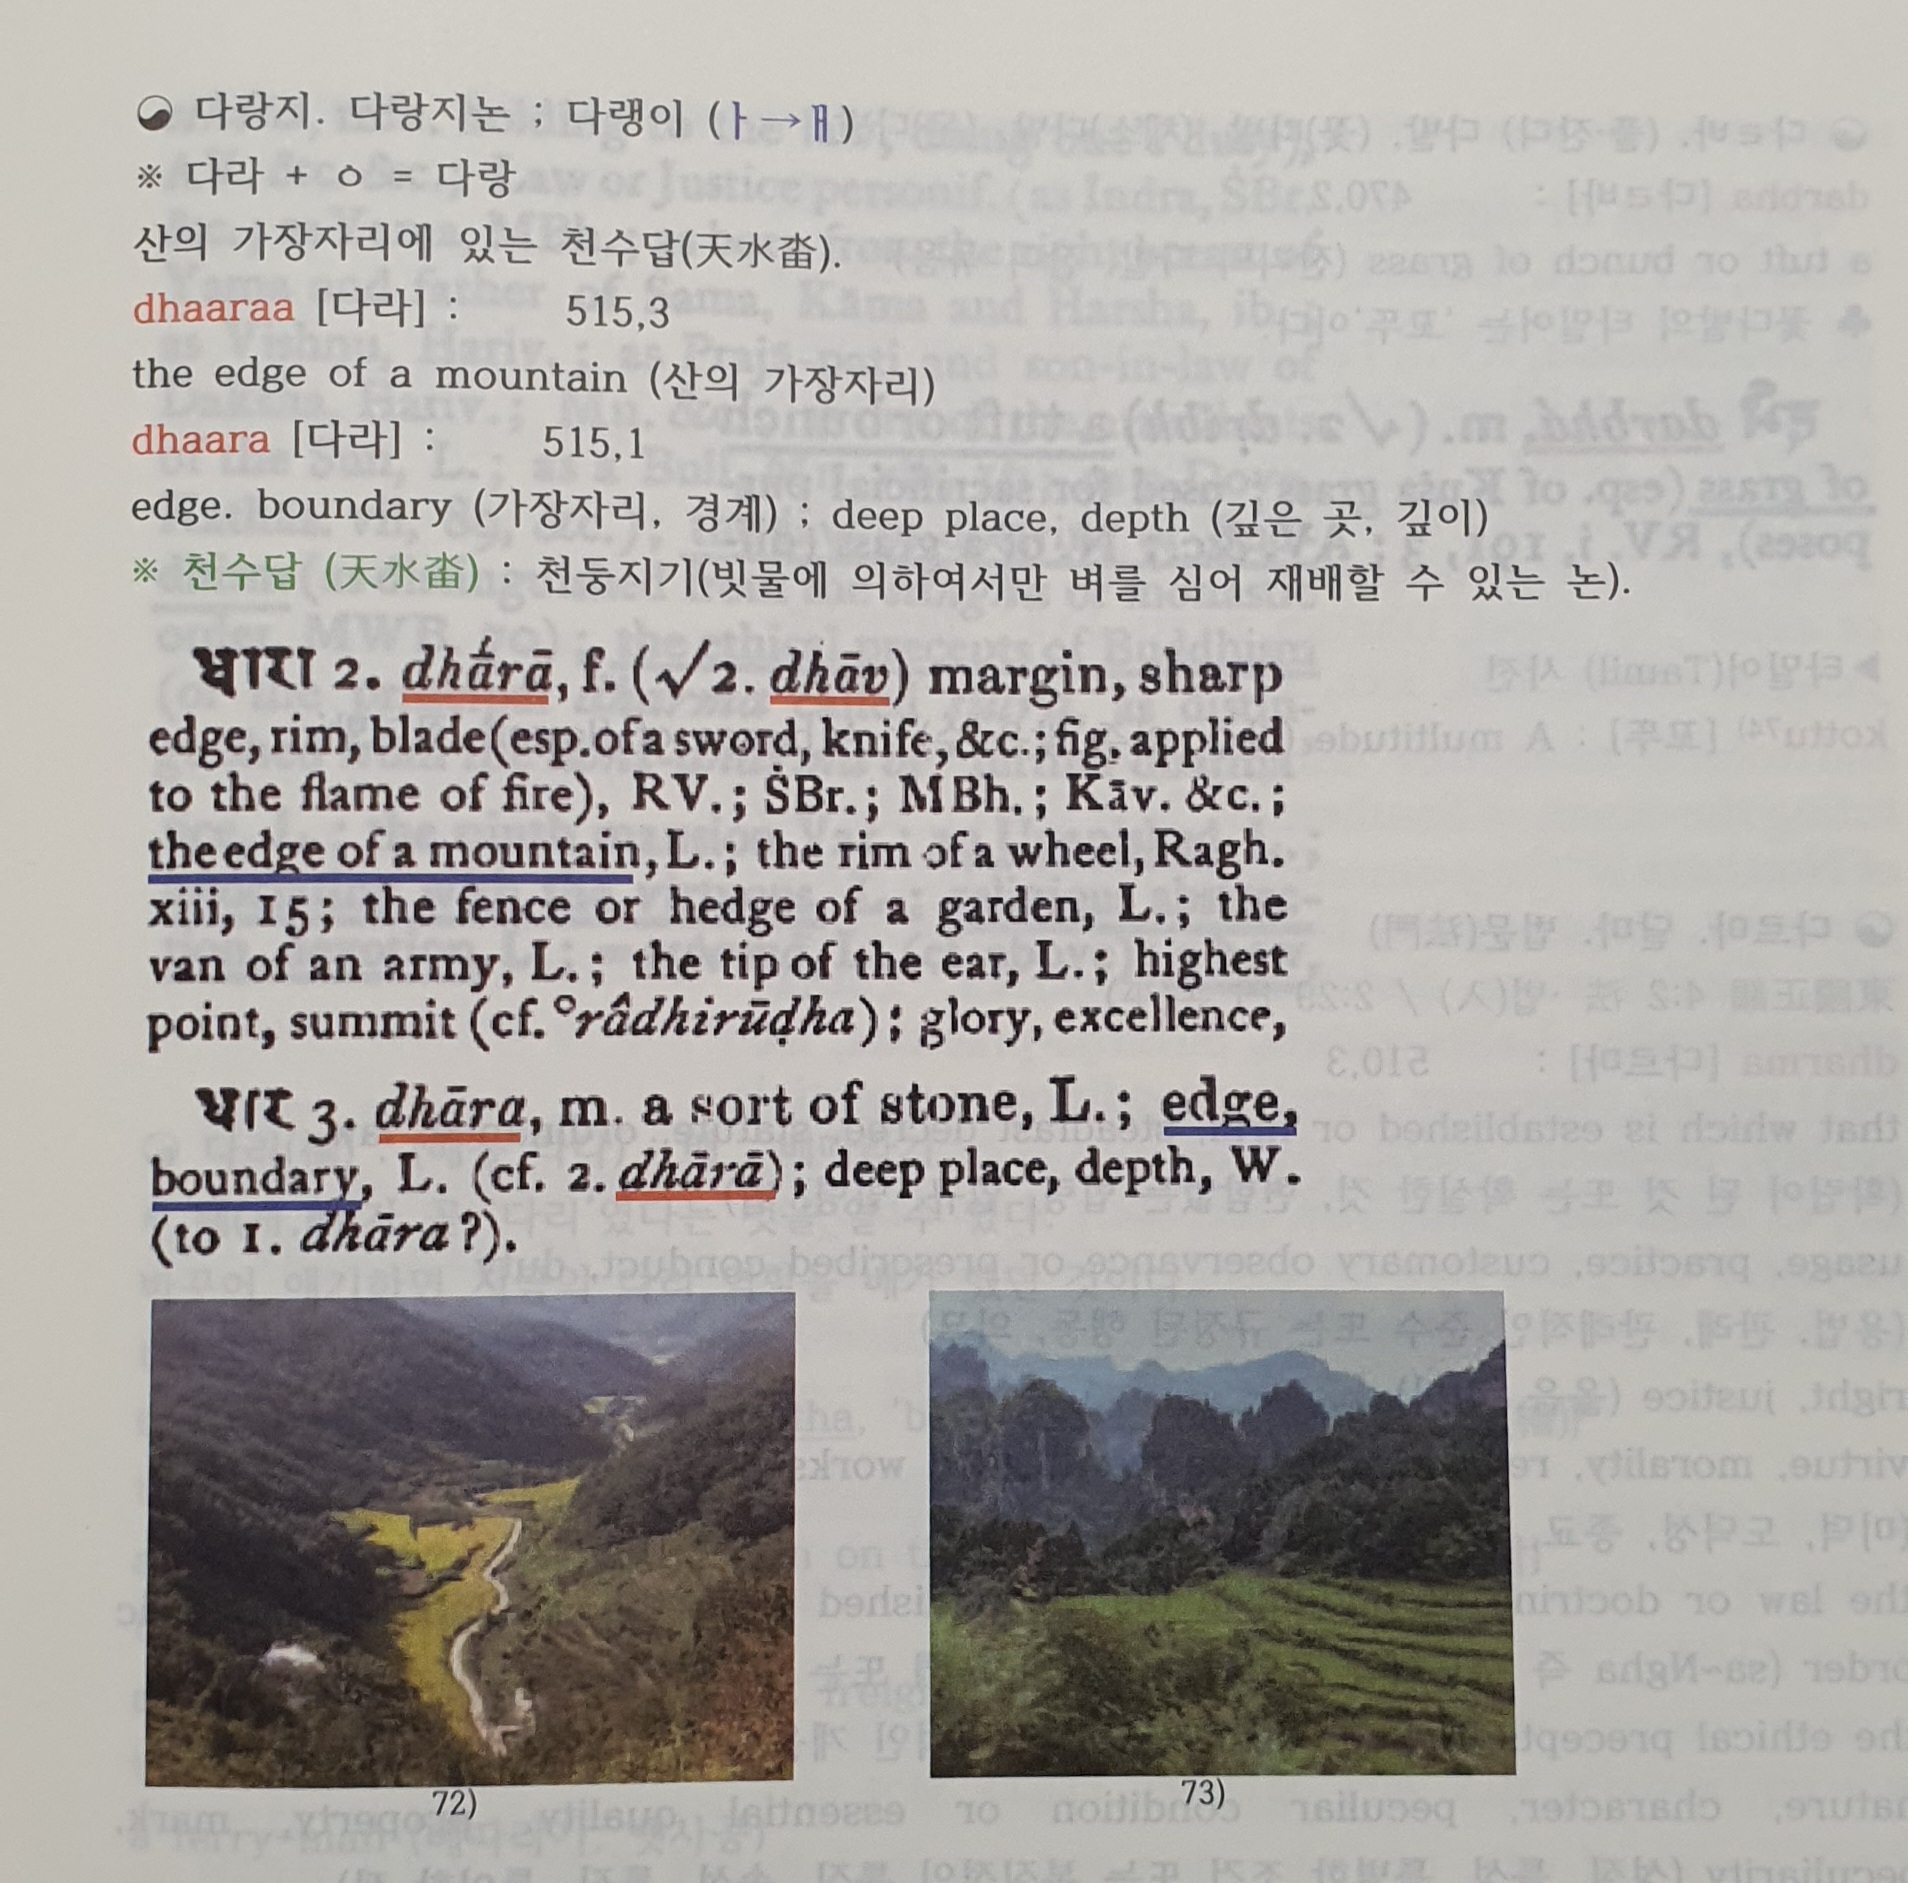 다랑지. 다랑지논 ; 다랭이 (ㅏ→ㅐ)
※ 다라 + ㅇ = 다랑
산의 가장자리에 있는 천수답(天水畓).
dhaaraa [다라] : 515,3
the edge of a mountain (산의 가장자리)
dhaara [다라] : 515,1
edge. boundary (가장자리, 경계) ; deep place, depth (깊은 곳, 깊이)
※ 천수답 (天水畓) : 천둥지기(빗물에 의하여서만 벼를 심어 재배할 수 있는 논).
धारा 2. dhā́rā, f. (√2. dhāv) margin, sharp
edge, rim, blade (esp. of a sword, knife, &c.; fig. applied
to the flame of fire), RV.; ŚBr.; MBh.; Kāv. &c.;
the edge of a mountain, L.; the rim of a wheel, Ragh.
xiii, 15; the fence or hedge of a garden, L.; the
van of an army, L.; the tip of the ear, L.; highest
point, summit (cf. °râdhirūḍha); glory, excellence,
धार 3. dhāra, m. a sort of stone, L.; edge,
boundary, L. (cf. 2. dhārā); deep place, depth, W.
(to 1. dhāra?).
72)
73)